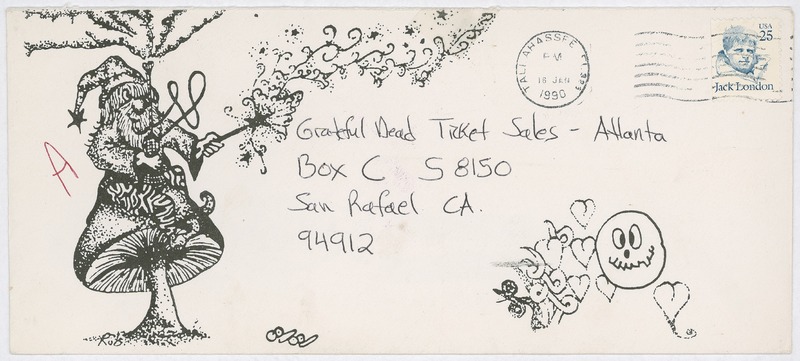 TALLAHASSEE, FL 323
PM
16 JAN
1990
USA
25
Jack London
A
Grateful Dead Ticket Sales - Atlanta
Box C S 8150
San Rafael CA.
94912